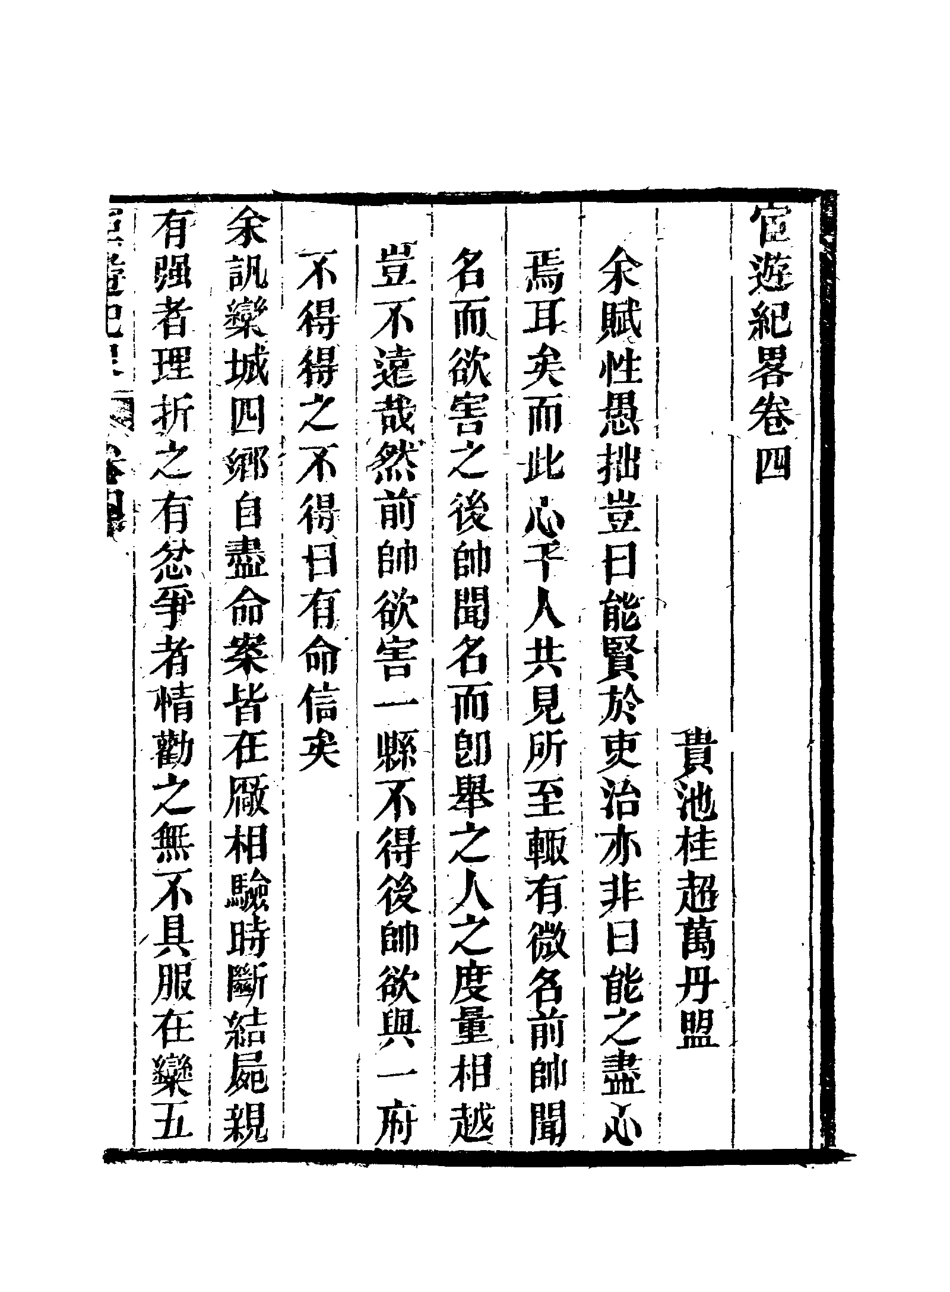 宦遊紀畧卷四
貴池桂超萬丹盟
余賦性愚拙豈曰能賢於吏治亦非曰能之盡心
焉耳矣而此心千人共見所至輙有微名前帥聞
名而欲害之後帥聞名而卽舉之人之度量相越
豈不遠哉然前帥欲害一縣不得後帥欲與一府
不得得之不得曰有命信矣
余訊欒城四鄉自盡命案皆在厰相驗時斷結屍親
有强者理折之有忿爭者情勸之無不具服在欒五
宦遊紀畧 卷四